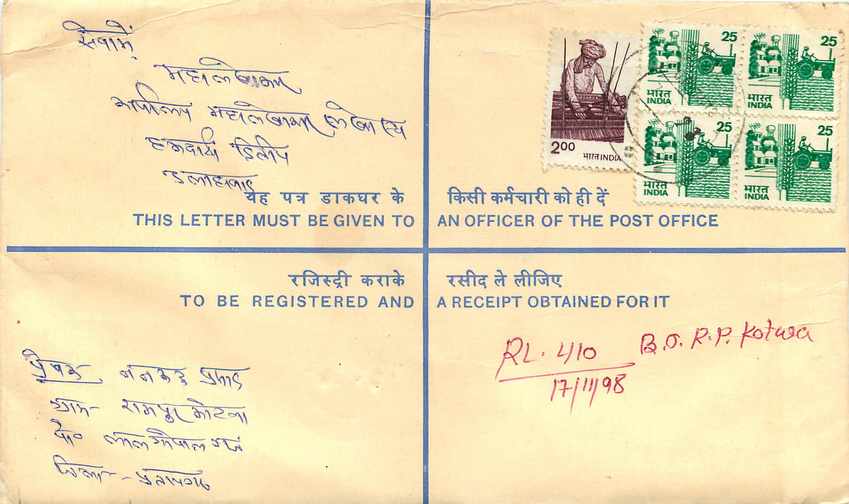 सेवामें,
महालेखाकार
कार्यालय महालेखाकार लेखा एवं
हकदारी द्वितीय
इलाहाबाद
2.00
भारत INDIA
25
भारत
INDIA
25
भारत
INDIA
25
भारत
INDIA
25
भारत
INDIA
यह पत्र डाकघर के किसी कर्मचारी को ही दें
THIS LETTER MUST BE GIVEN TO AN OFFICER OF THE POST OFFICE
रजिस्ट्री कराके रसीद ले लीजिए
TO BE REGISTERED AND A RECEIPT OBTAINED FOR IT
RL. 410 B.O. R.P. Kotwa
17/11/98
प्रेषक प्रसाद
ग्राम- रामपुर कोटवा
पो० लालगोपालगंज
जिला- प्रतापगढ़